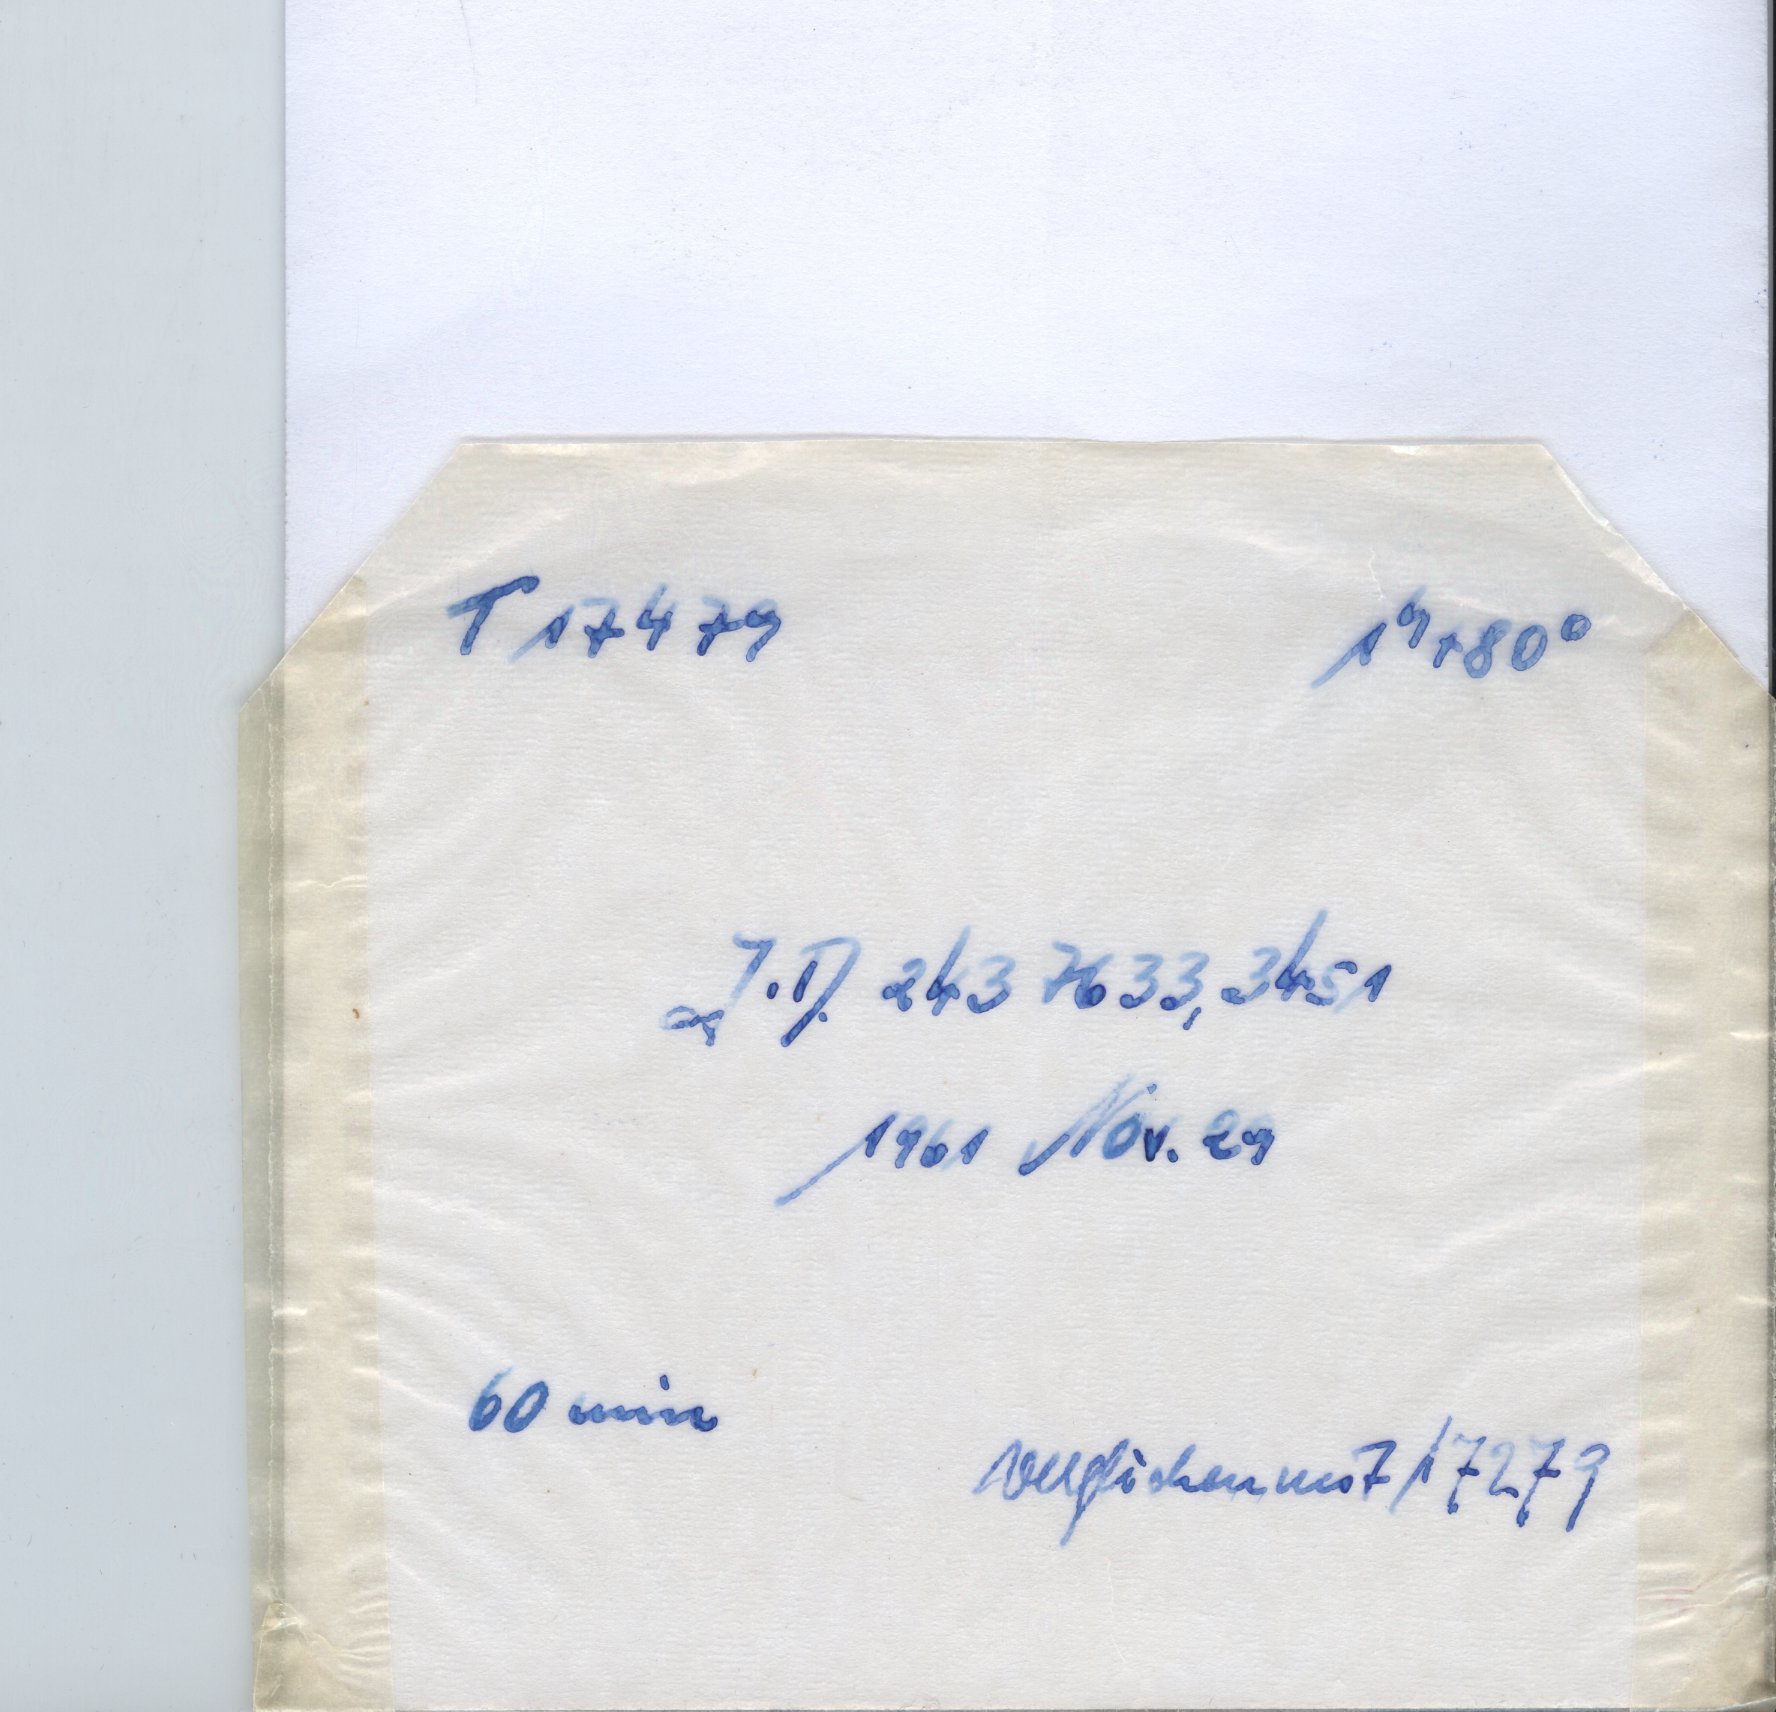 T 17479
1ʰ+80°
J.D. 243 7633,3451
1961 Nov. 29
60 min
verglichen mit 17279